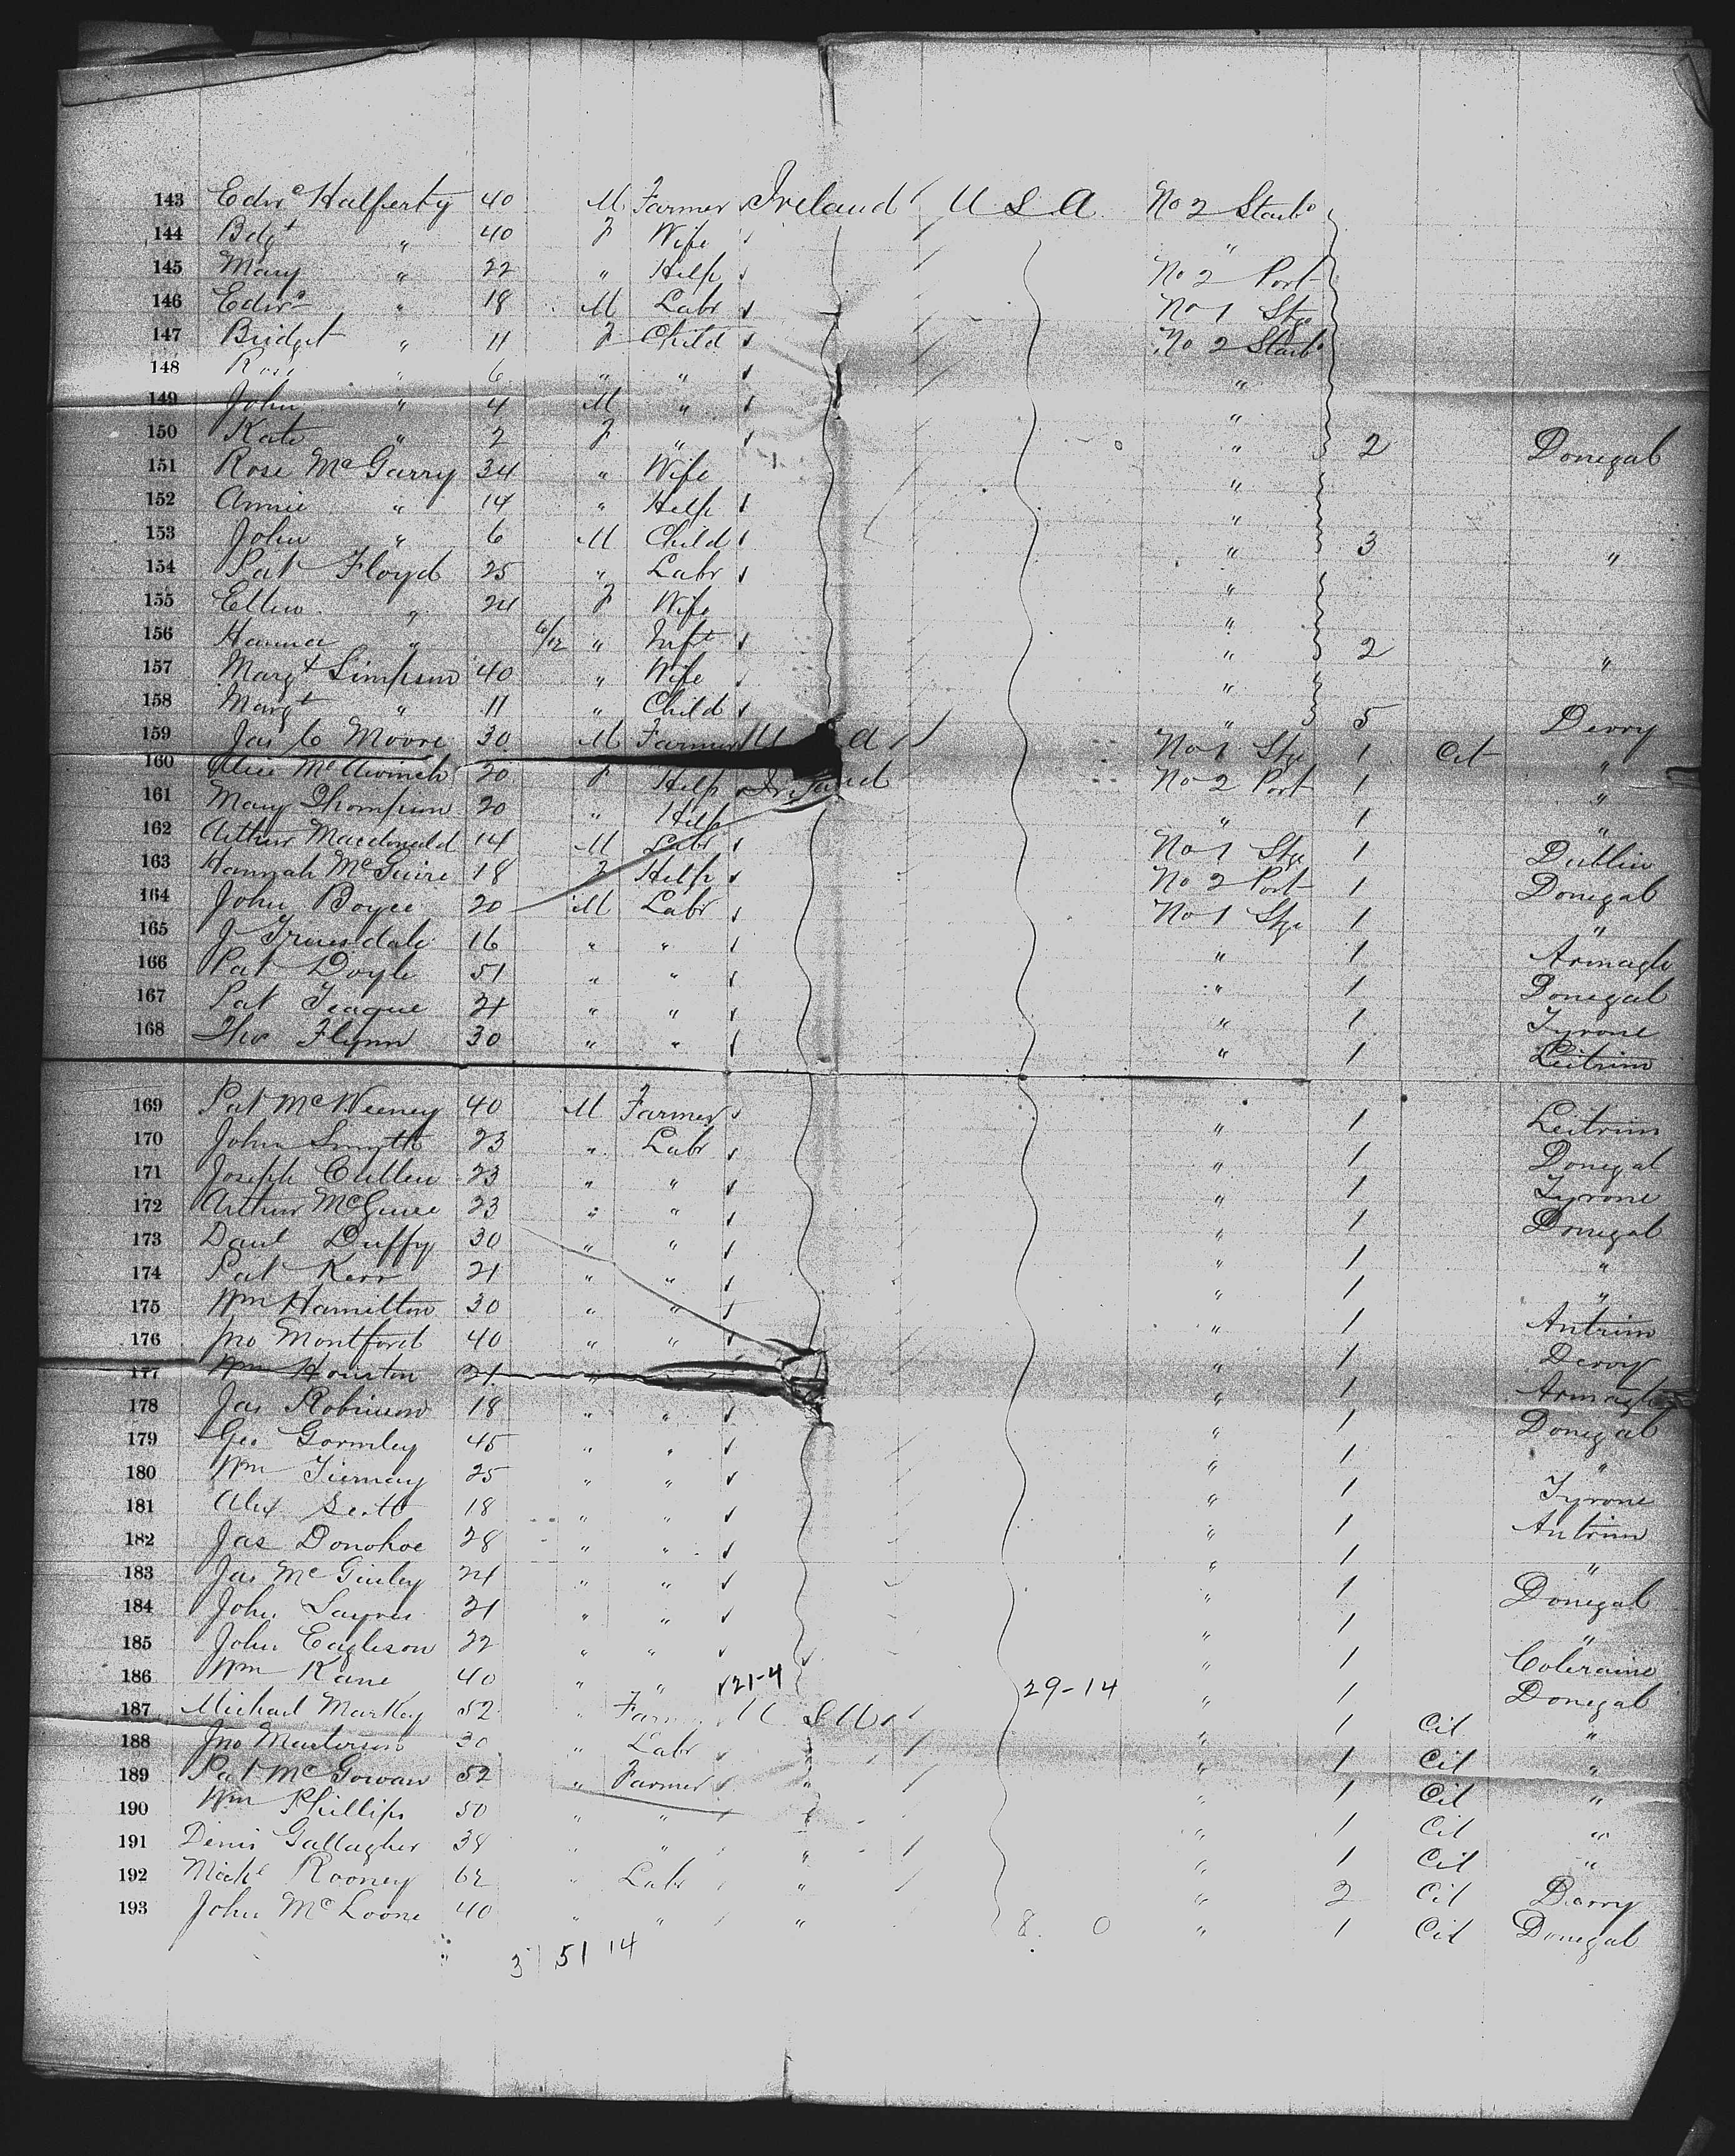 143 Edwd Halferty 40 M Farmer Ireland U S A No 2 Starbd
144 Bdgt " 40 F Wife "
145 Mary " 22 " Help No 2 Port
146 Edwd " 18 M Labr No 1 Stge
147 Bridget " 11 F Child No 2 Starbd
148 Rose " 6 " " "
149 John " 4 M " "
150 Kate " 2 F " " 2 Donegal
151 Rose McGarry 34 " Wife "
152 Annie " 14 " Help "
153 John " 6 M Child " 3 "
154 Pat Floyd 25 " Labr "
155 Ellen " 24 F Wife "
156 Hanna " 6/12 " Inft " 2 "
157 Margt Simpson 40 " Wife "
158 Margt " 11 " Child " 5 Derry
159 Jas C Moore 30 M Farmer U A No 1 Stge 1 Cit "
160 Alice 20 F Help Ireland No 2 Port 1 "
161 Mary Thompson 20 " Help " 1 "
162 Arthur Macdonald 14 M Labr No 1 Stge 1 Dublin
163 Hannah McGuire 18 F Help No 2 Port 1 Donegal
164 John Boyce 20 M Labr No 1 Stge 1 "
165 J Truesdale 16 " " " 1 Armagh
166 Pat Doyle 51 " " " 1 Donegal
167 Pat Teague 21 " " " 1 Tyrone
168 Tho Flynn 30 " " " 1 Leitrim
169 Pat McWeeney 40 M Farmer " 1 Leitrim
170 John Smyth 23 " Labr " 1 Donegal
171 Joseph Cullen 23 " " " 1 Tyrone
172 Arthur McGuire 23 " " " 1 Donegal
173 Danl Duffy 30 " " " 1 "
174 Pat Kerr 21 " " " 1 "
175 Wm Hamilton 30 " " " 1 Antrim
176 Jno Montford 40 " " " 1 Derry
177 Wm Houston 21 " " 1 Armagh
178 Jas Robinson 18 " " " 1 Donegal
179 Geo Gormley 45 " " " 1 "
180 Wm Tiernay 25 " " " 1 Tyrone
181 Alex Scott 18 " " " 1 Antrim
182 Jas Donohoe 28 " " " 1 "
183 Jas McGinley 21 " " " 1 Donegal
184 John 21 " " " 1 "
185 John Eagleson 22 " " " 1 Coleraine
186 Wm Kane 40 " " 21-4 29-14 " 1 Donegal
187 Michael Markey 52 " Farm U S A " 1 Cit "
188 Jno Masterson 30 " Labr " " 1 Cit "
189 Pat McGowan 52 " Farmer " " 1 Cit "
190 Wm Phillips 50 " " " " 1 Cit "
191 Denis Gallagher 38 " " " " 1 Cit "
192 Michl Rooney 62 " Labr " " 2 Cit Derry
193 John McLoone 40 " " " 8 0 " 1 Cit Donegal
3 51 14